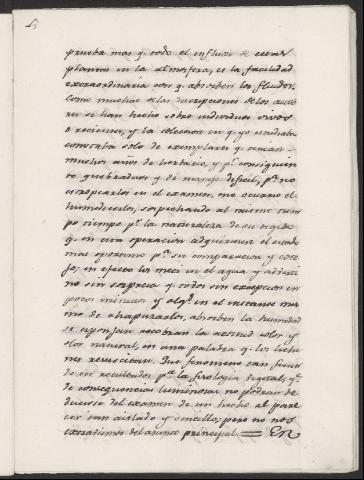 prueba mas q.e todo el influxo de estas
plantas en la atmosfera, es la facilidad
extraordinaria con q.e absorben los fluidos.
Como muchas de las descripciones de los auto
res se han hecho sobre individuos vivos
o recientes, y la coleccion en q.e yo estudiaba
constaba solo de exemplares q.e tenian
muchos años de herbario, y p.r consiguien
te quebradizos y de manejo dificil, p.a no
estropearlos en el examen, me ocurrio el
humedecerlos, sospechando al mismo tiem
po tiempo p.r la naturaleza de su tegido
q.e en esta operacion adquiririan el estado
mas oportuno p.a su comparacion y cote
jo; en efecto los meti en el agua y adverti
no sin sorpresa q.e todos sin excepcion en
pocos minutos y alg.s en el instante mis
mo de chapuzarlos, absorben la humedad
se esponjan recobran la actitud color y
olor natural, en una palabra q.e los liche
nes resuscitan. Este fenomeno tan fecun
do en resultados p.a la fisiologia vegetal, q.e
de consequencias luminosas no podran de
ducirse del examen de un hecho al pare
cer tan aislado y sencillo; pero no nos
extraviemos del asunto principal = En